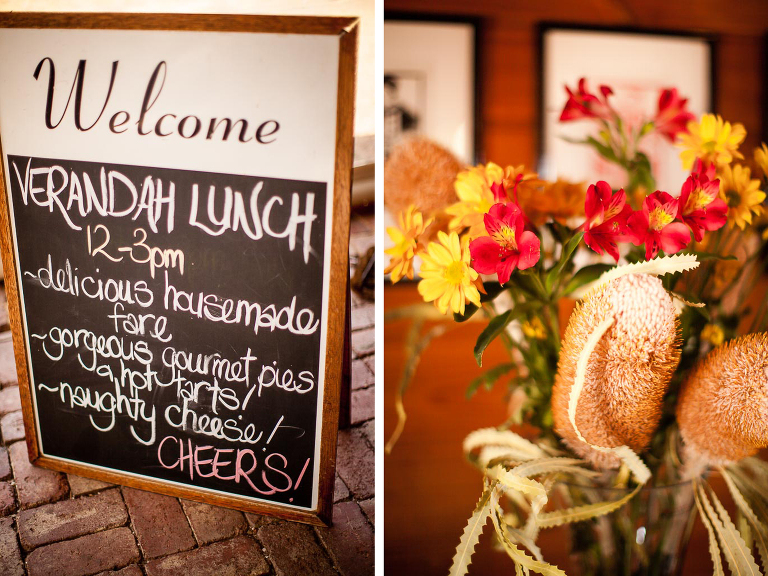 Welcome
VERANDAH LUNCH
12-3pm
~delicious housemade
fare
~gorgeous gourmet pies
& hot tarts!
~naughty cheese!
CHEERS!